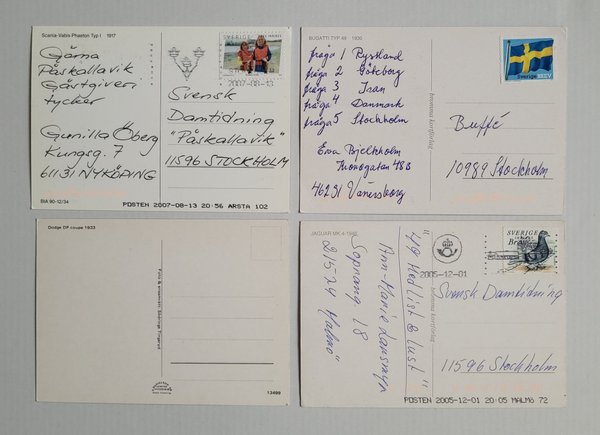 Scania-Vabis-Phaeton Typ I 1917
Gärna
Påskallavik
Gästgiveri
tycker
Gunilla Öberg
Kungsg. 7
61131 NYKÖPING
BIA 90-12/34
SVERIGE
2007-08-13
Svensk
Damtidning
"Påskallavik"
11596 STOCKHOLM
POSTEN 2007-08-13 20 56 ÅRSTA 102
BUGATTI TYP 49 1930
fråga 1 Ryssland
fråga 2 Göteborg
fråga 3 Iran
fråga 4 Danmark
fråga 5 Stockholm
Ewa Bjelkholm
Kronogatan 48B
46231 Vänersborg
Sverige BREV
Buffé
10989 Stockholm
Dodge DP coupe 1933
13499
JAGUAR MK 4 1948
"49 Med list & lust"
Ann-Marie
Sopnang. 18
21574 Malmö
2005-12-01
SVERIGE
Brev
Svensk Damtidning
11596 Stockholm
POSTEN 2005-12-01 20 05 MALMÖ 72